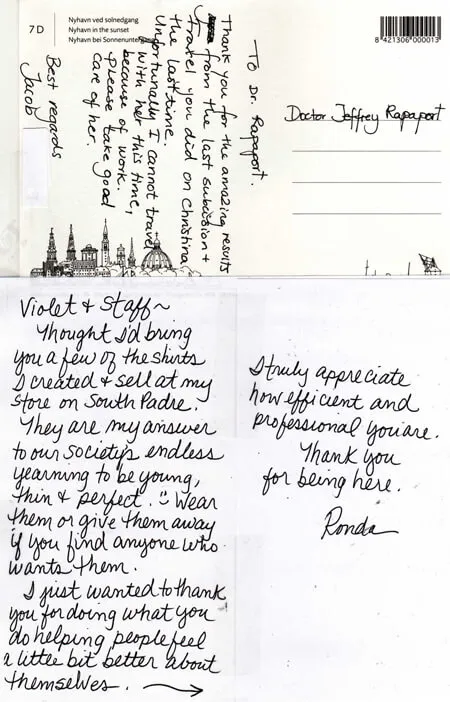 Nyhavn ved solnedgang
7 D Nyhavn in the sunset
Nyhavn bei Sonnenunter
8 421306 000013
Doctor Jeffrey Rapaport
To Dr. Rapaport.
Thank you for the amazing results
from the last subcision +
fraxel you did on Christina
the last time.
Unfortunally I cannot travel
with her this time,
because of work.
Please take good
care of her.
Best regards
Jacob
Violet & Staff~
Thought I'd bring
you a few of the shirts
I created & sell at my
store on South Padre.
They are my answer
to our society's endless
yearning to be young,
thin & perfect. Wear
them or give them away
if you find anyone who
wants them.
I just wanted to thank
you for doing what you
do helping people feel
a little bit better about
themselves.
I truly appreciate
how efficient and
professional you are.
Thank you
for being here.
Ronda